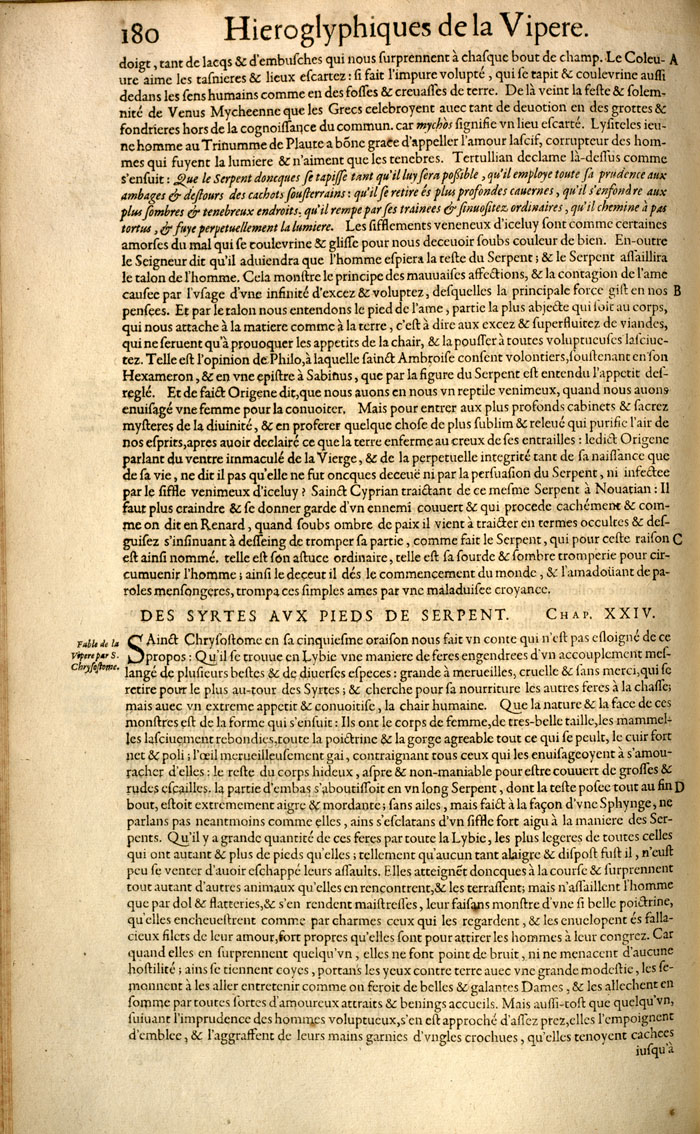 180 Hieroglyphiques de la Vipere.
doigt, tant de lacqs & d'embusches qui nous surprennent à chasque bout de champ. Le Coleu- A
ure aime les tasnieres & lieux escartez : si fait l'impure volupté, qui se tapit & coulevrine aussi
dedans les sens humains comme en des fosses & creuasses de terre. De là veint la feste & solem-
nité de Venus Mycheenne que les Grecs celebroyent auec tant de deuotion en des grottes &
fondrieres hors de la cognoissance du commun. car mychòs signifie vn lieu escarté. Lysiteles ieu-
ne homme au Trinumme de Plaute a bõne grace d'appeller l'amour lascif, corrupteur des hom-
mes qui fuyent la lumiere & n'aiment que les tenebres. Tertullian declame là-dessus comme
s'ensuit : Que le Serpent doncques se tapisse tant qu'il luy sera poßible, qu'il employe toute sa prudence aux
ambages & destours des cachots sousterrains : qu'il se retire és plus profondes cauernes, qu'il s'enfondre aux
plus sombres & tenebreux endroits, qu'il rempe par ses trainees & sinuositez ordinaires, qu'il chemine à pas
tortus, & fuye perpetuellement la lumiere. Les sifflements veneneux d'iceluy sont comme certaines
amorses du mal qui se coulevrine & glisse pour nous deceuoir soubs couleur de bien. En-outre
le Seigneur dit qu'il aduiendra que l'homme espiera la teste du Serpent ; & le Serpent assaillira
le talon de l'homme. Cela monstre le principe des mauuaises affections, & la contagion de l'ame
causee par l'vsage d'vne infinité d'excez & voluptez, desquelles la principale force gist en nos B
pensees. Et par le talon nous entendons le pied de l'ame, partie la plus abjecte qui soit au corps,
qui nous attache à la matiere comme à la terre, c'est à dire aux excez & superfluitez de viandes,
qui ne seruent qu'à prouoquer les appetits de la chair, & la pousser à toutes voluptueuses lasciue-
tez. Telle est l'opinion de Philo, à laquelle sainct Ambroise consent volontiers, soustenant en son
Hexameron, & en vne epistre à Sabinus, que par la figure du Serpent est entendu l'appetit des-
reglé. Et de faict Origene dit, que nous auons en nous vn reptile venimeux, quand nous auons
enuisagé vne femme pour la conuoiter. Mais pour entrer aux plus profonds cabinets & sacrez
mysteres de la diuinité, & en proferer quelque chose de plus sublim & releué qui purifie l'air de
nos esprits, apres auoir declairé ce que la terre enferme au creux de ses entrailles : ledict Origene
parlant du ventre immaculé de la Vierge, & de la perpetuelle integrité tant de sa naissance que
de sa vie, ne dit il pas qu'elle ne fut oncques deceuë ni par la persuasion du Serpent, ni infectee
par le siffle venimeux d'iceluy ? Sainct Cyprian traictant de ce mesme Serpent à Nouatian : Il
faut plus craindre & se donner garde d'vn ennemi couuert & qui procede cachément & com-
me on dit en Renard, quand soubs ombre de paix il vient à traicter en termes occultes & des-
guisez s'insinuant à desseing de tromper sa partie, comme fait le Serpent, qui pour ceste raison C
est ainsi nommé. telle est son astuce ordinaire, telle est sa sourde & sombre tromperie pour cir-
cumuenir l'homme ; ainsi le deceut il dés le commencement du monde, & l'amadoüant de pa-
roles mensongeres, trompa ces simples ames par vne maladuisee croyance.
DES SYRTES AVX PIEDS DE SERPENT. CHAP. XXIV.
Fable de la
Vipere par S.
Chrysostome.
SAinct Chrysostome en sa cinquiesme oraison nous fait vn conte qui n'est pas esloigné de ce
propos : Qu'il se trouue en Lybie vne maniere de feres engendrees d'vn accouplement mes-
langé de plusieurs bestes & de diuerses especes : grande à merueilles, cruelle & sans merci, qui se
retire pour le plus au-tour des Syrtes ; & cherche pour sa nourriture les autres feres à la chasse;
mais auec vn extreme appetit & conuoitise, la chair humaine. Que la nature & la face de ces
monstres est de la forme qui s'ensuit : Ils ont le corps de femme, de tres-belle taille, les mammel-
les lasciuement rebondies, toute la poictrine & la gorge agreable tout ce qui se peult, le cuir fort
net & poli ; l'œil merueilleusement gai, contraignant tous ceux qui les enuisageoyent à s'amou-
racher d'elles : le reste du corps hideux, aspre & non-maniable pour estre couuert de grosses &
rudes escailles. la partie d'embas s'aboutissoit en vn long Serpent, dont la teste posee tout au fin D
bout, estoit extremement aigre & mordante ; sans ailes, mais faict à la façon d'vne Sphynge, ne
parlans pas neantmoins comme elles, ains s'esclatans d'vn siffle fort aigu à la maniere des Ser-
pents. Qu'il y a grande quantité de ces feres par toute la Lybie, les plus legeres de toutes celles
qui ont autant & plus de pieds qu'elles ; tellement qu'aucun tant alaigre & dispost fust il, n'eust
peu se venter d'auoir eschappé leurs assaults. Elles atteignẽt doncques à la course & surprennent
tout autant d'autres animaux qu'elles en rencontrent, & les terrassent; mais n'assaillent l'homme
que par dol & flatteries, & s'en rendent maistresses, leur faisans monstre d'vne si belle poictrine,
qu'elles encheuestrent comme par charmes ceux qui les regardent, & les enuelopent és falla-
cieux filets de leur amour, fort propres qu'elles sont pour attirer les hommes à leur congrez. Car
quand elles en surprennent quelqu'vn, elles ne font point de bruit, ni ne menacent d'aucune
hostilité ; ains se tiennent coyes, portans les yeux contre terre auec vne grande modestie, les se-
monnent à les aller entretenir comme on feroit de belles & galantes Dames, & les allechent en
somme par toutes sortes d'amoureux attraits & benings accueils. Mais aussi-tost que quelqu'vn,
suiuant l'imprudence des hommes voluptueux, s'en est approché d'assez prez, elles l'empoignent
d'emblee, & l'aggraffent de leurs mains garnies d'vngles crochues, qu'elles tenoyent cachees
iusqu'à